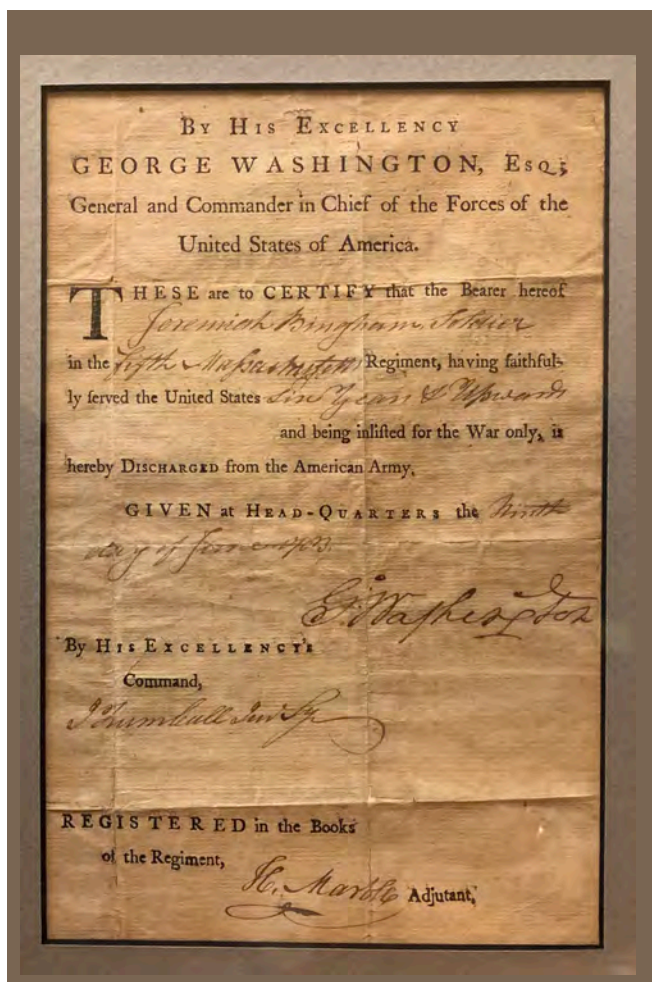 By His Excellency
GEORGE WASHINGTON, Esq;
General and Commander in Chief of the Forces of the
United States of America.
THESE are to CERTIFY that the Bearer hereof
Jeremiah Bingham, Soldier
in the fifth Massachusetts Regiment, having faithful-
ly ſerved the United States Six Years & Upwards
and being inliſted for the War only, is
hereby Discharged from the American Army.
GIVEN at Head-Quarters the Ninth
day of June 1783
G:Waſhington
By His Excellency's
Command,
J Trumbull Jun Sy
REGISTERED in the Books
of the Regiment,
H. Marble Adjutant,